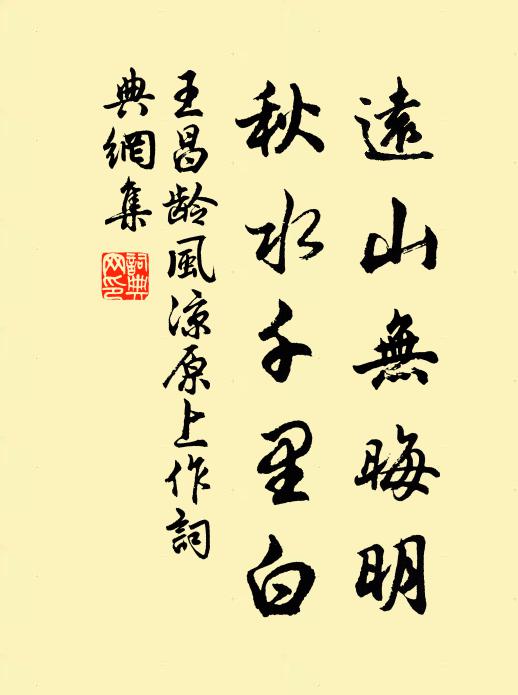 遠山無晦明
秋水千里白
王昌龄風涼原上作詞
典網集
詞典网印